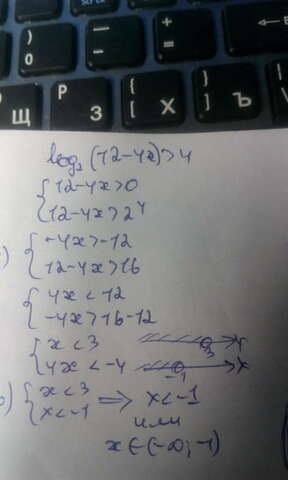 ) — +
0 - =
Щ Р З { [ Х } ] Ъ
log₂(12-4x)>4
{ 12-4x>0
12-4x>2⁴
) { -4x>-12
12-4x>16
{ 4x<12
-4x>16-12
{ x<3 3 x
4x<-4 -1 x
) { x<3 ⇒ x<-1
x<-1 или
x∈(-∞;-1)